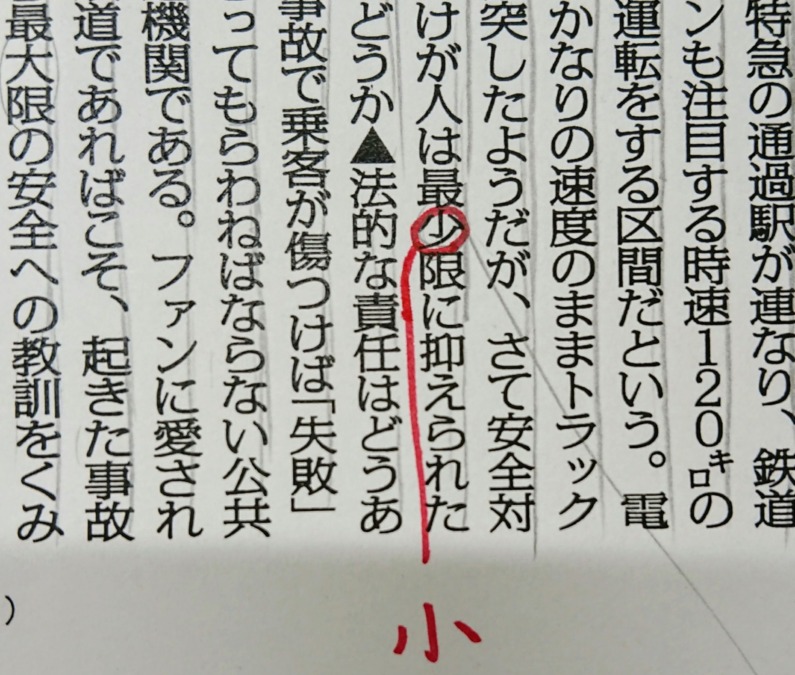 特急の通過駅が連なり、鉄道
ンも注目する時速120㌔の
運転をする区間だという。電
かなりの速度のままトラック
突したようだが、さて安全対
けが人は最少限に抑えられた
どうか▲法的な責任はどうあ
事故で乗客が傷つけば「失敗」
ってもらわねばならない公共
機関である。ファンに愛され
道であればこそ、起きた事故
最大限の安全への教訓をくみ
)
小